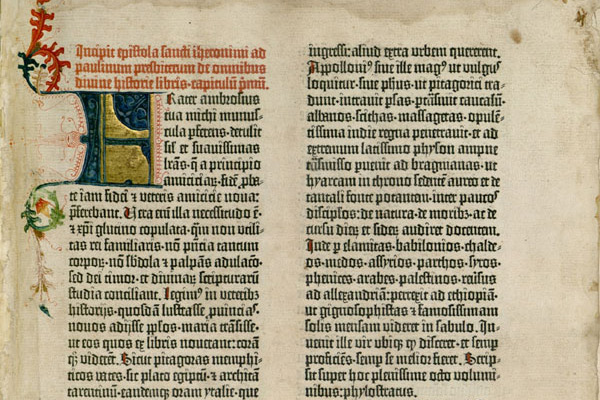 Incipit epistola sancti iheronimi ad
paulinum presbiterum de omnibus
divine historie libris·capitulũ pmũ.
Frater ambrosius
tua michi munus-
cula pferens·detulit
sił et suavissimas
lrãs·q̃ a principio
amiciciaȝ·fidẽ pba-
te iam fidei ⁊ veteris amicicie nova:
pferebant. Vera eni̅ illa necessitudo ẽ·
⁊ xpi̅ glutino copulata·qm̃ non utili-
tas rei familiaris·nõ pñcia tantum
corporȝ·nõ sb̓dola ⁊ palpãs adulaco̅·
sed dei timor·et divinaȝ scripturarũ
studia conciliant. Legim⁹ in veteribȝ
historijs·quosdã lustrasse ꝓvincias·
novos adijsse pplos·maria trãsisse·
ut eos quos ex libris noverant: coram
qȝ viderẽt. Sicut pitagoras memphi-
ticos vates·sic plato egiptũ·⁊ architã
tarentinũ·eandemqȝ oram ytalie·que
ingressi: aliud extra urbem quererent.
Appolloni⁹ sive ille mag⁹ ut vulgus
loquitur·sive phũs·ut pitagorici tra-
dunt·intravit psas·ptrãsivit caucasũ·
albanos·scithas·massagetas·opulẽ-
tissima indie regna penetravit·et ad
extremum latissimo physon ampne
trãsmisso pvenit ad bragmanas·ut
hyarcam in throno sedentẽ aureo et de
tantali fonte potantem·inter paucos
discipłos: de natura·de moribȝ·ac de
cursu dierȝ et sideȝ audiret docentem.
Inde p elamitas·babilonios·chalde-
os·medos·assyrios·parthos·syros·
phenices·arabes·palestinos·reversus
ad allexandriã: perrexit ad ethiopiã·
ut gignosophistas ⁊ famosissimam
solis mensam videret in sabulo. In-
venit ille vir ubiqȝ qd̓ disceret·et semp
proficiẽs·semp se melior fieret. Scrip-
sit super hoc plenissime octo volumi-
nibus: phylostratus.